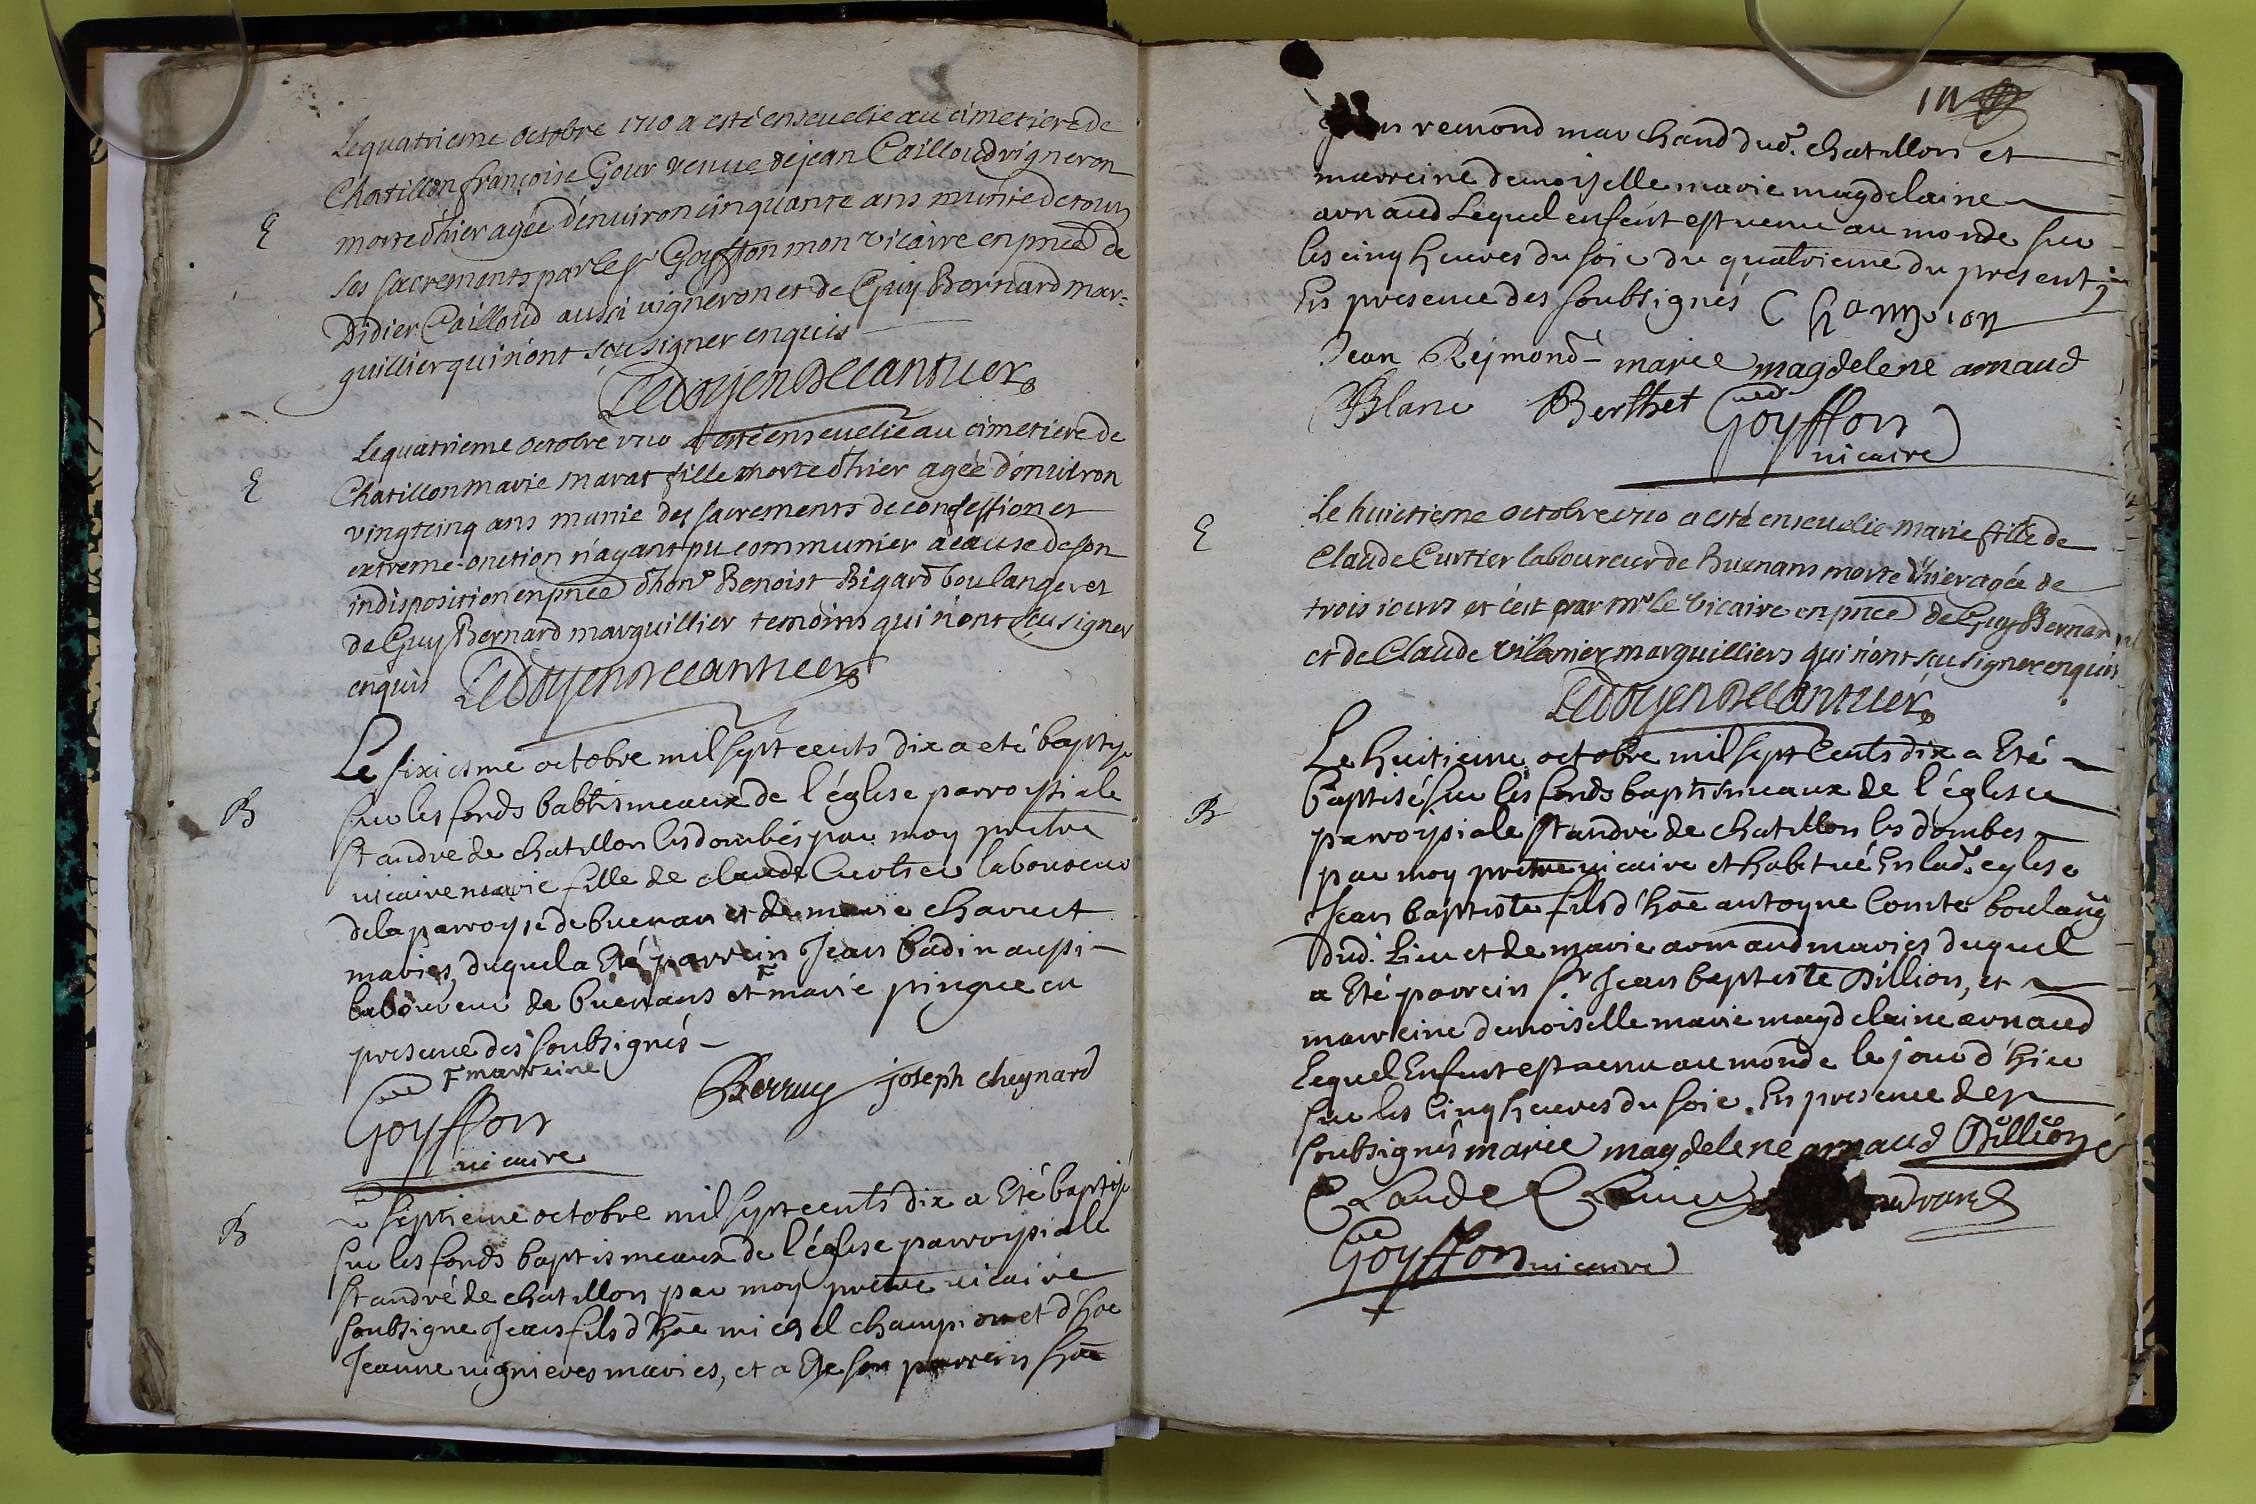 Le quatrieme octobre 1710 a esté ensevelie au cimetiere de
Chatillon françoise Gour veuve de jean Cailloud vigneron
E
morte d'hier agée d'environ cinquante ans munie de tous
ses sacrements par le sr Goyffon mon vicaire en pnce de
Didier Cailloud aussi vigneron et de Guy Bernard mar=
guillier qui n'ont sçu signer enquis
Ledoyen Decantuer
Le quatrieme octobre 1710 a esté ensevelie au cimetiere de
E
Chatillon Marie Marat fille morte d'hier agée d'environ
vingtcinq ans munie des sacrements de confession et
extreme-onction n'ayant pu communier a cause de son
indisposition en pnce d'hon. Benoist Bigard boulanger et
de Guy Bernard marguillier temoins qui n'ont sçu signer
enquis Ledoyen Decantuer
Le sixiesme octobre mil sept cents dix a eté baptisé
B
sur les fonds babtismeaux de l'église parroissiale
st andré de chatillon les dombes par moy prêtre
vicaire marie fille de claude Curtier laboureur
de la parroyse de buenans et de marie charvet
maries, duquel a Eté parrein Jean badin aussi
laboureur de buenans et F marie pingue en
presence des soubsignés
F marreine
Goyffon Berruy joseph cheynard
vicaire
B
Le septieme octobre mil sept cents dix a Eté baptisé
sur les fonds baptismeaux de l'église parroissiale
st andré de chatillon par moy prêtre vicaire
soubsigne Jean fils d'hõe michel champion et d'hõe
Jeanne vignieres maries, et a Eté son parrein hõe
remond marchand dud. chatillon et
marreine demoiselle marie magdelaine
arnaud Lequel enfent est venu au monde sur
les cinq heures du soir du quatrieme du present
En presence des soubsignés Champion
Jean Reymond marie magdelene arnaud
Blanc Berthet Goyffon
vicaire
Le huictieme octobre 1710 a esté ensevelie Marie fille de
E
Claude Curtier laboureur de Buenans morte d'hier agée de
trois jours et c'est par Mr Le Vicaire en pnce de Guy Bernard
et de Claude Vilanier marguilliers qui n'ont sçu signer enquis
Ledoyen Decantuer
Le huitieme octobre mil sept cents dix a Eté
B
baptisé sur les fonds baptismeaux de l'église
parroissiale st andré de chatillon les dombes
par moy prêtre vicaire et habitué En lad. eglise
Jean baptiste fils d'hõe antoyne Comte boulang
dud. Lieu et de marie armand maries duquel
a Eté parrein sr Jean baptiste Dillion, et
marreine demoiselle marie magdelaine arnaud
Lequel Enfent est venu au monde le jour d'hier
sur les Cinq heures du soir. En presence des
soubsignés marie magdelene arnaud Dillion
Claude
Goyffon vicaire